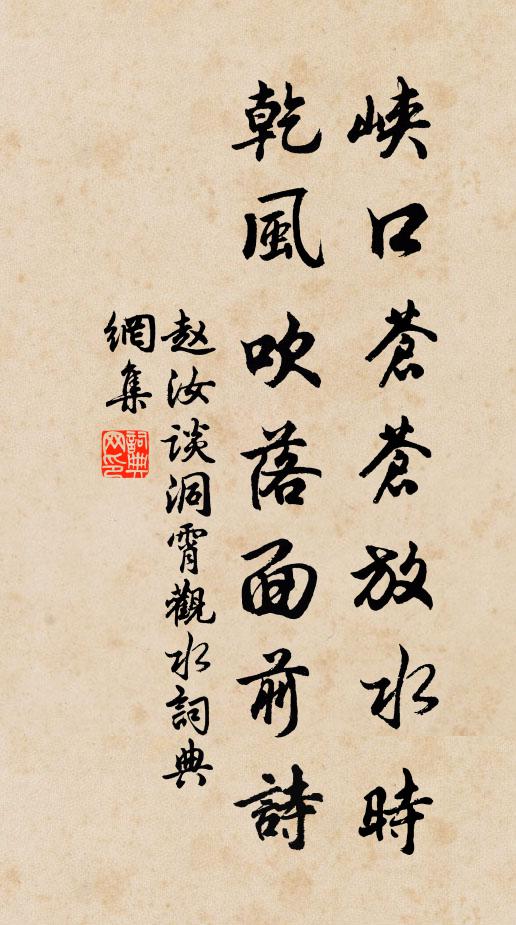 峽口蒼蒼放水時
乾風吹落面前詩
赵汝談洞霄觀水詞典
網集
詞典网印